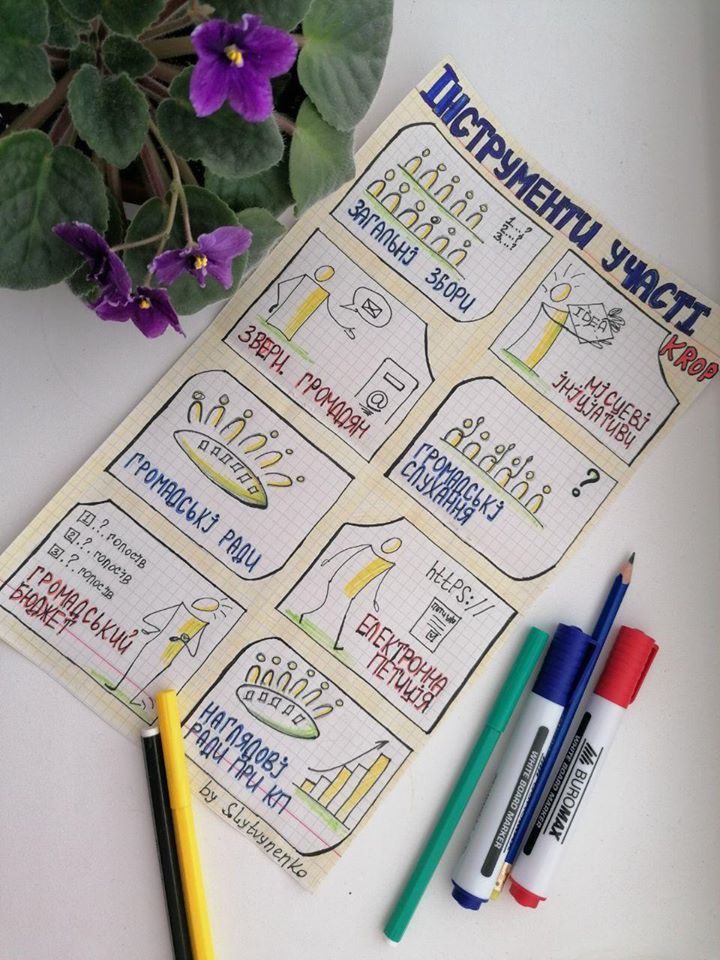 ІНСТРУМЕНТИ УЧАСТІ
KROP
ЗАГАЛЬНІ ЗБОРИ
1. ...?
2. ...?
3. ...?
IDEA
МІСЦЕВІ
ІНІЦІАТИВИ
ЗВЕРН. ГРОМАДЯН
@
ГРОМАДСЬКІ
СЛУХАННЯ
?
ГРОМАДСЬКІ РАДИ
https://
ЕЛЕКТРОННА
ПЕТИЦІЯ
1. ? голосів
2. ? голосів
3. ? голосів
ГРОМАДСЬКИЙ
БЮДЖЕТ
НАГЛЯДОВІ
РАДИ ПРИ КП
by Slytvynenko
WHITE BOARD MARKER
BUROMAX
WHITE BOARD MARKER